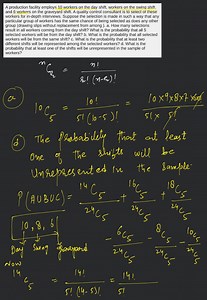 A production facility employs 10 workers on the day shift, 8 workers on the swing shift,
and 6 workers on the graveyard shift. A quality control consultant is to select 5 of these
workers for in-depth interviews. Suppose the selection is made in such a way that any
particular group of 5 workers has the same chance of being selected as does any other
group (drawing slips without replacement from among 24). a. How many selections
result in all 5 workers coming from the day shift? What is the probability that all 5
selected workers will be from the day shift? b. What is the probability that all 5 selected
workers will be from the same shift? c. What is the probability that at least two
different shifts will be represented among the selected workers? d. What is the
probability that at least one of the shifts will be unrepresented in the sample of
workers?
nCr = n! / r! (n-r)!
(a)
10C5 = 10! / 5! (10-5)! = 10×9×8×7×6×5! / 5! × 5!
(d) The Probability that at least
One of the shifts will be
Unrepresented in the Sample:
P(AUBUC) = 14C5 / 24C5 + 16C5 / 24C5 + 18C5 / 24C5
10, 8, 6
- 6C5 / 24C5 - 8C5 / 24C5 - 10C5 / 24C5
Day Swing Graveyard
Now
14C5 = 14! / 5! (14-5)! = 14! / 5!